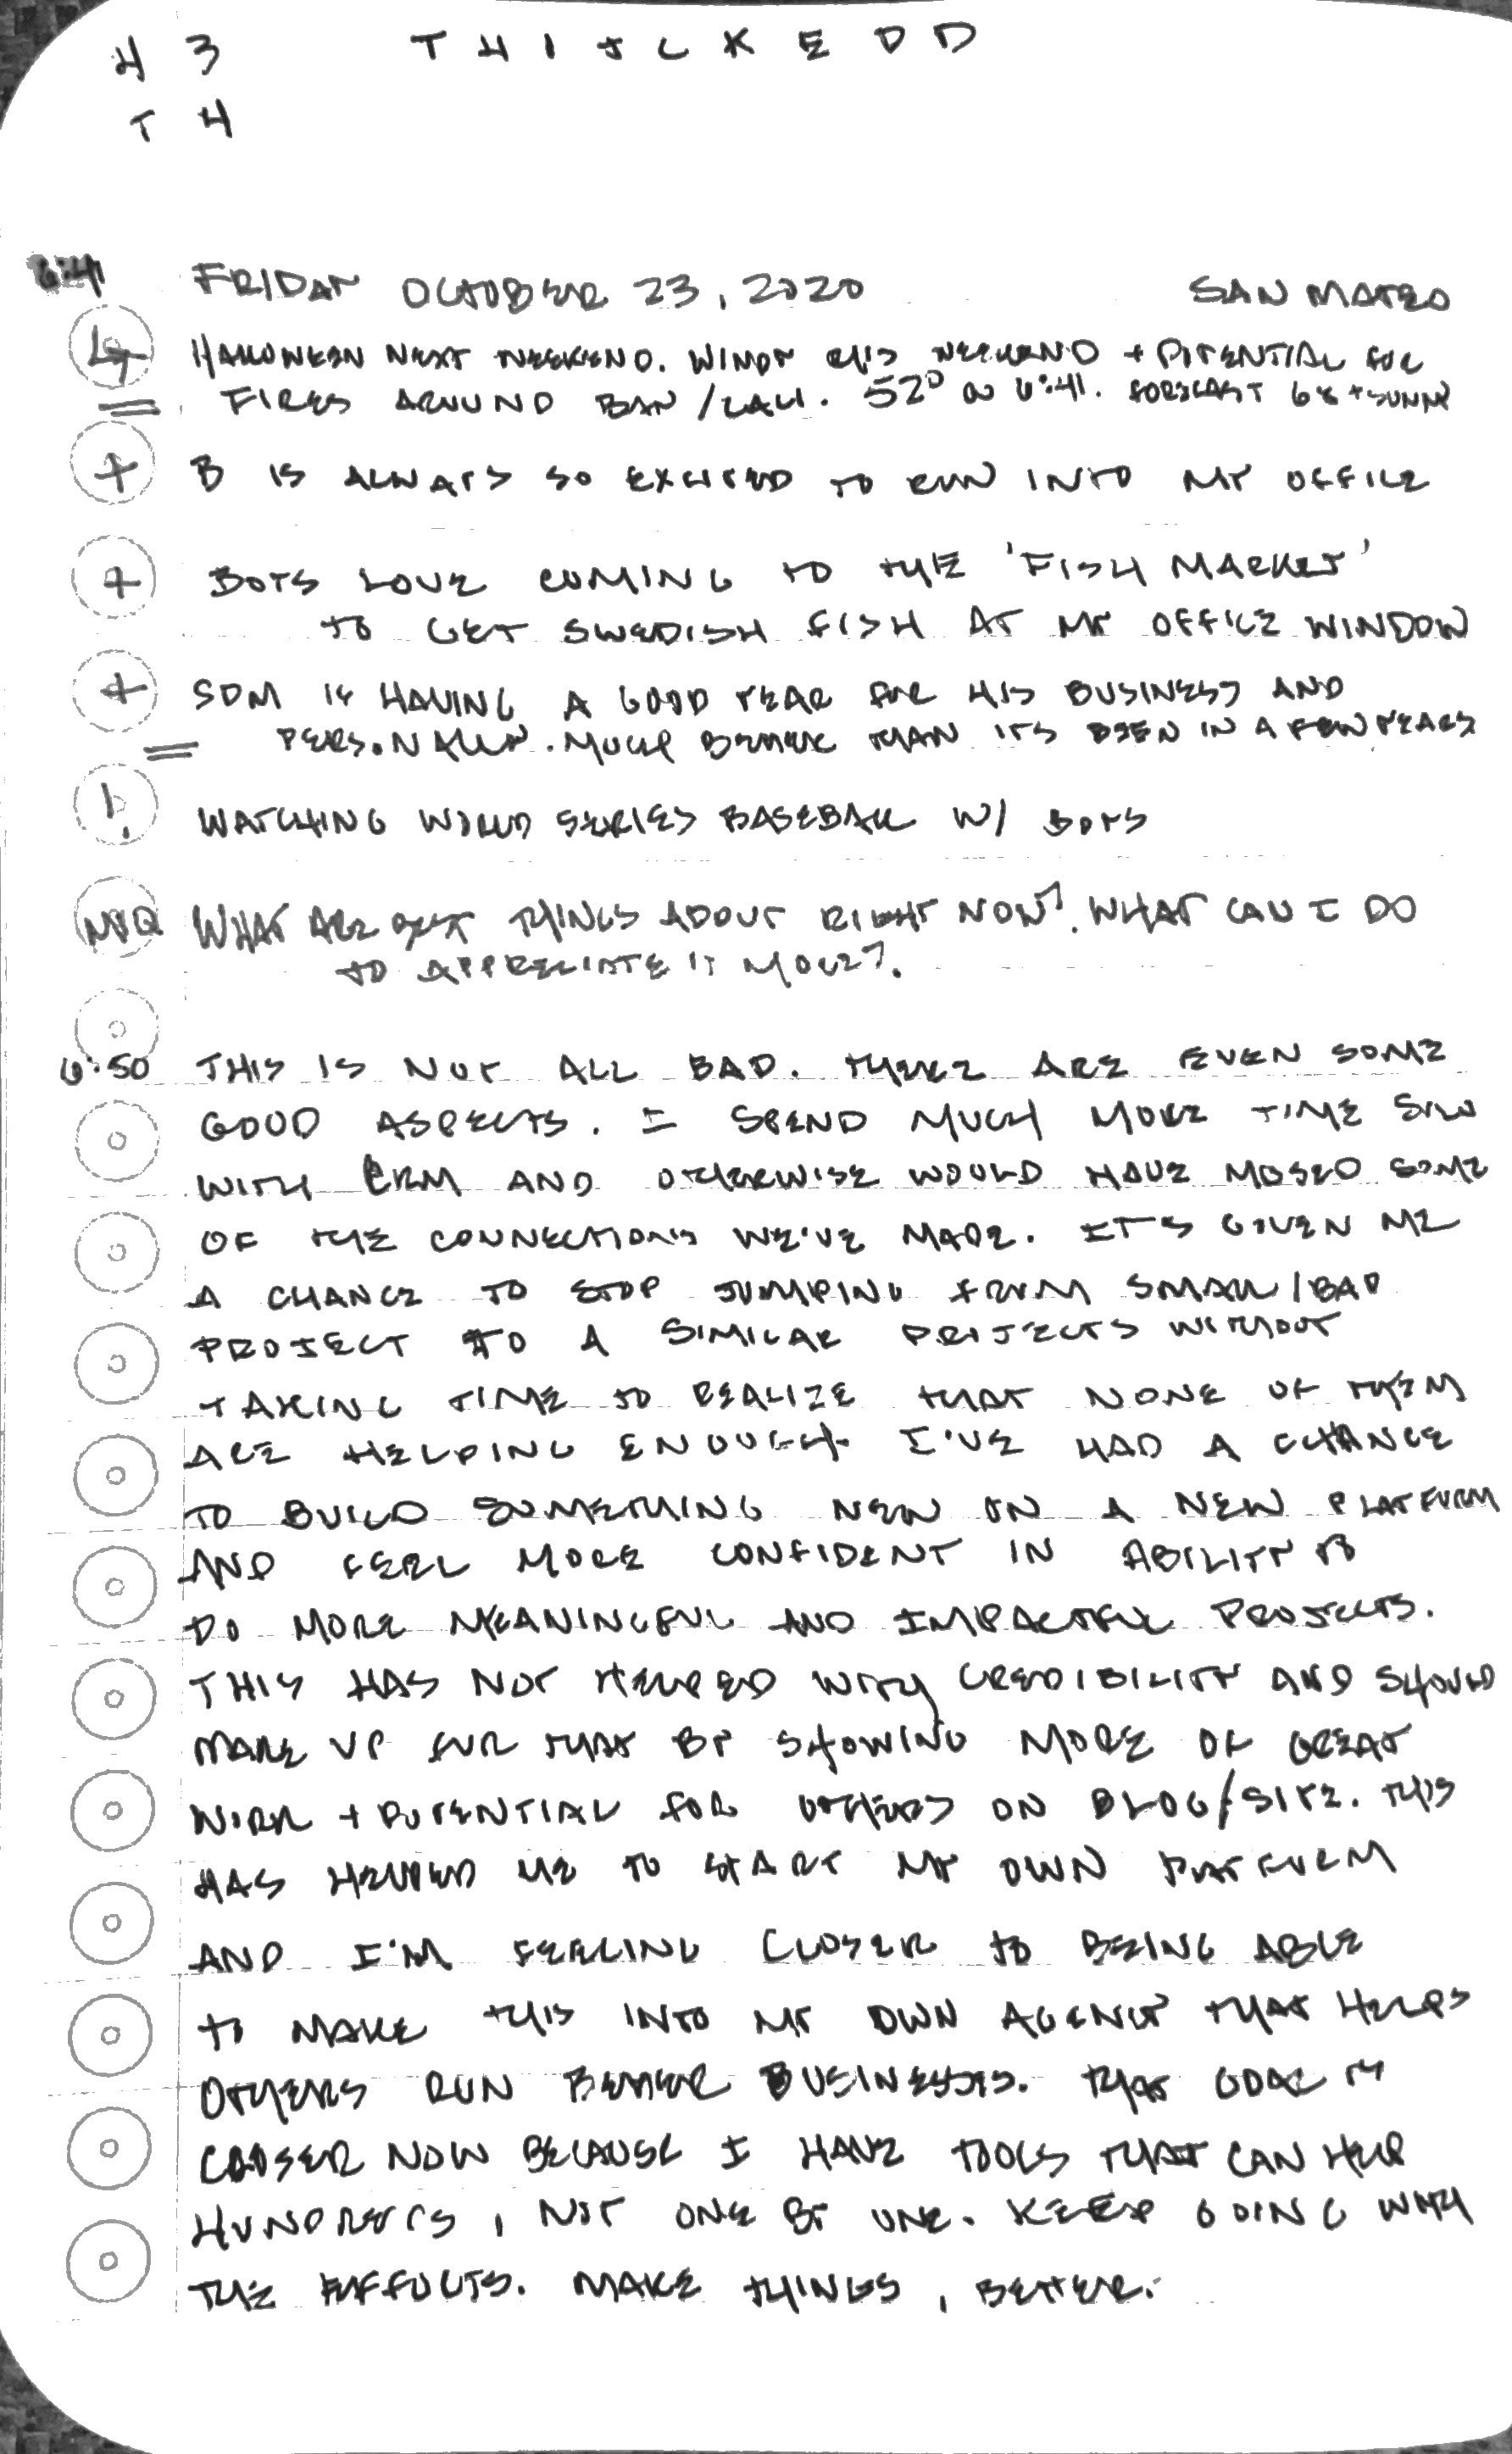 43 THICKEDD
T4
6:41 FRIDAY OCTOBER 23, 2020 SAN MATEO
HALLOWEEN NEXT WEEKEND. WINDY THIS WEEKEND + POTENTIAL FOR
= FIRES AROUND BAY / CALI. 52° @ 6:41. FORECAST 68 + SUNNY
+ B IS ALWAYS SO EXCITED TO RUN INTO MY OFFICE
+ BOYS LOVE COMING TO THE 'FISH MARKET'
TO GET SWEDISH FISH AT MY OFFICE WINDOW
+ SDM IS HAVING A GOOD YEAR FOR HIS BUSINESS AND
= PERSONALLY. MUCH BETTER THAN ITS BEEN IN A FEW YEARS
! WATCHING WORLD SERIES BASEBALL W/ BOYS
MVQ WHAT ARE BEST THINGS ABOUT RIGHT NOW?. WHAT CAN I DO
TO APPRECIATE IT MORE?.
6:50 THIS IS NOT ALL BAD. THERE ARE EVEN SOME
GOOD ASPECTS. I SPEND MUCH MORE TIME
WITH CRM AND OTHERWISE WOULD HAVE MISSED SOME
OF THE CONNECTIONS WE'VE MADE. IT'S GIVEN ME
A CHANCE TO STOP JUMPING FROM SMALL/BAD
PROJECT TO A SIMILAR PROJECTS WITHOUT
TAKING TIME TO REALIZE THAT NONE OF THEM
ARE HELPING ENOUGH. I'VE HAD A CHANCE
TO BUILD SOMETHING NEW ON A NEW PLATFORM
AND FEEL MORE CONFIDENT IN ABILITY TO
DO MORE MEANINGFUL AND IMPACTFUL PROJECTS.
THIS HAS NOT HELPED WITH CREDIBILITY AND SHOULD
MAKE UP FOR THAT BY SHOWING MORE OF GREAT
WORK + POTENTIAL FOR OTHERS ON BLOG/SITE. THIS
HAS HELPED ME TO START MY OWN PLATFORM
AND I'M FEELING CLOSER TO BEING ABLE
TO MAKE THIS INTO MY OWN AGENCY THAT HELPS
OTHERS RUN BETTER BUSINESSES. THAT GOAL IS
CLOSER NOW BECAUSE I HAVE TOOLS THAT CAN HELP
HUNDREDS, NOT ONE BY ONE. KEEP GOING WITH
THE EFFORTS. MAKE THINGS, BETTER.